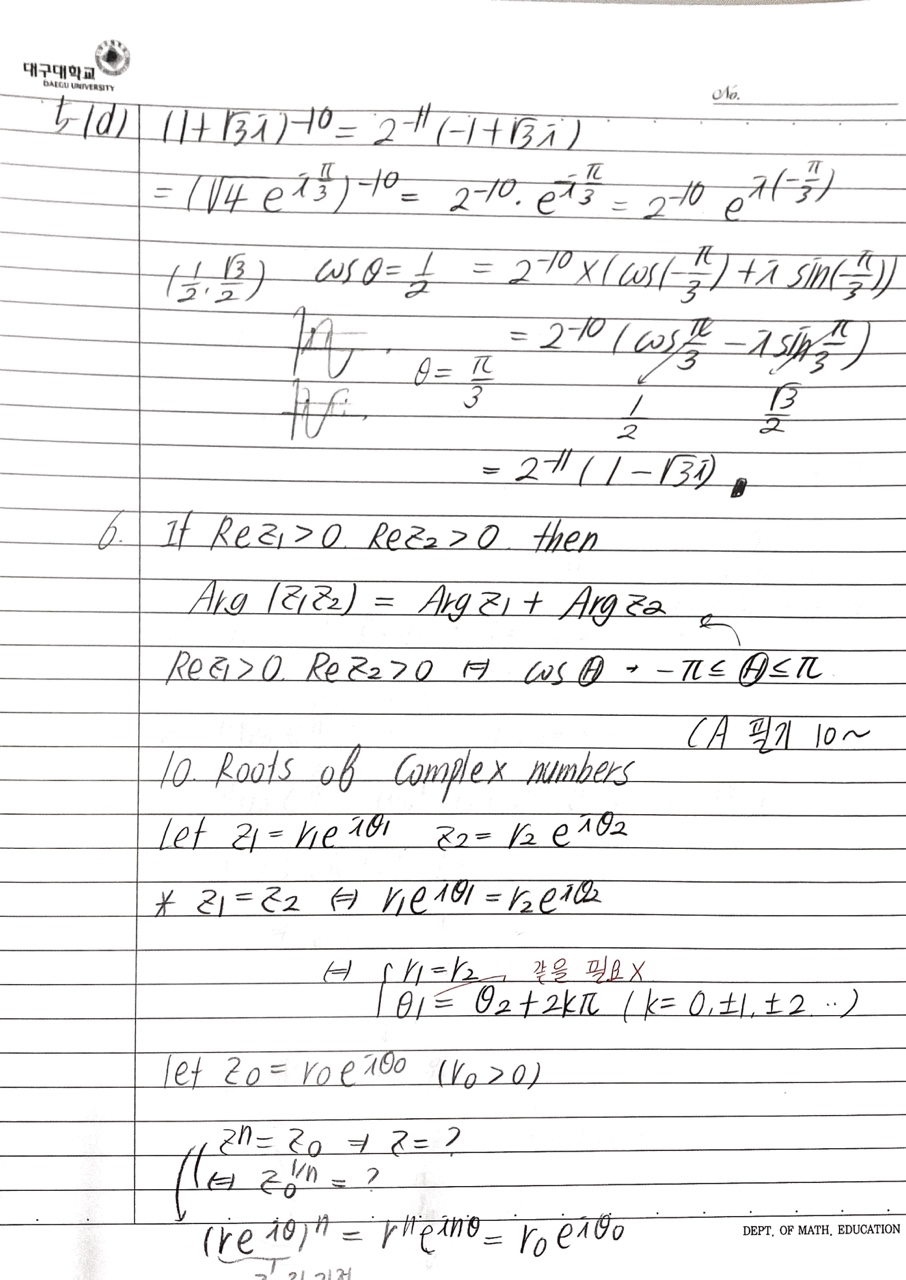 대구대학교
DAEGU UNIVERSITY
No.
5-(d) (1+√3i)^-10 = 2^-11(-1+√3i)
= (√4 e^{i π/3})^-10 = 2^-10 · e^{i π/3} = 2^-10 e^{i(-π/3)}
(1/2, √3/2) cosθ = 1/2 = 2^-10 × (cos(-π/3) + i sin(-π/3))
= 2^-10 (cos π/3 - i sin π/3)
θ = π/3 1/2 √3/2
= 2^-11 (1 - √3i)
6. If Re z₁ > 0. Re z₂ > 0. then
Arg (z₁z₂) = Arg z₁ + Arg z₂
Re z₁ > 0. Re z₂ > 0 ⇔ cos Θ → -π ≤ Θ ≤ π
CA 필기 10~
10. Roots of Complex numbers
let z₁ = r₁e^{iθ₁} z₂ = r₂e^{iθ₂}
* z₁ = z₂ ⇔ r₁e^{iθ₁} = r₂e^{iθ₂}
⇔ { r₁ = r₂ 같을 필요 X
θ₁ = θ₂ + 2kπ (k = 0, ±1, ±2 ··)
let z₀ = r₀e^{iθ₀} (r₀ > 0)
zⁿ = z₀ ⇒ z = ?
⇔ z₀^{1/n} = ?
(re^{iθ})ⁿ = rⁿe^{inθ} = r₀e^{iθ₀}
DEPT. OF MATH. EDUCATION